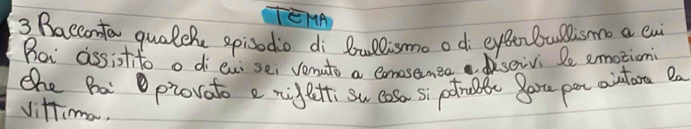 TEMA
3 Racconta qualche episodio di bullismo o di cyberbullismo a cui
hai assistito o di cui sei venuto a conoscenza e descrivi le emozioni
che hai provato e rifletti su cosa si potrebbe fare per aiutare la
vittima.